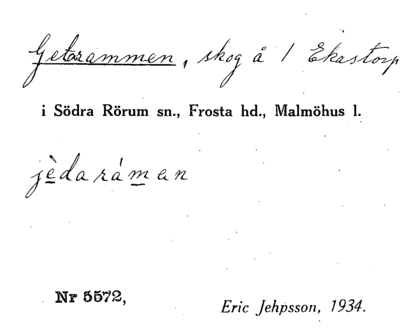 Getrammen, skog å 1 Ekastorp
i Södra Rörum sn., Frosta hd., Malmöhus l.
jèdaráman
Nr 5572,
Eric Jehpsson, 1934.